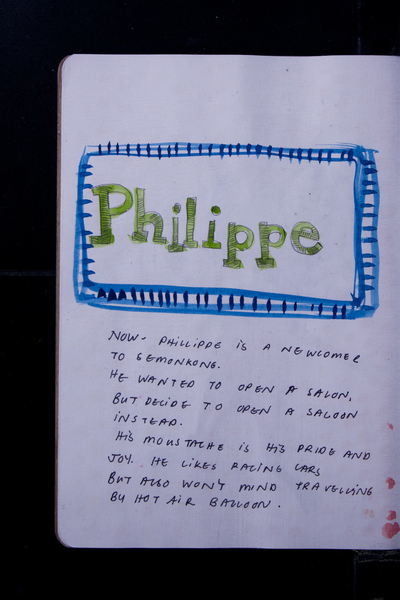 Philippe
NOW- PHILLIPPE IS A NEWCOMER
TO SEMONKONG.
HE WANTED TO OPEN A SALON,
BUT DECIDE TO OPEN A SALOON
INSTEAD.
HIS MOUSTACHE IS HIS PRIDE AND
JOY. HE LIKES RACING CARS
BUT ALSO WON'T MIND TRAVELLING
BY HOT AIR BALLOON.